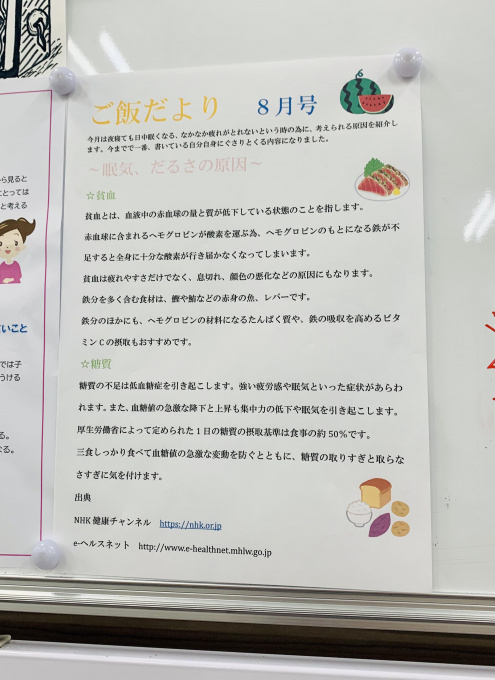 ご飯だより 8月号
今月は夜寝ても日中眠くなる、なかなか疲れがとれないという時の為に、考えられる原因を紹介し
ます。今までで一番、書いている自分自身にぐさりとくる内容になりました。
～眠気、だるさの原因～
☆貧血
貧血とは、血液中の赤血球の量と質が低下している状態のことを指します。
赤血球に含まれるヘモグロビンが酸素を運ぶ為、ヘモグロビンのもとになる鉄が不
足すると全身に十分な酸素が行き届かなくなってしまいます。
貧血は疲れやすさだけでなく、息切れ、顔色の悪化などの原因にもなります。
鉄分を多く含む食材は、鰹や鮪などの赤身の魚、レバーです。
鉄分のほかにも、ヘモグロビンの材料になるたんぱく質や、鉄の吸収を高めるビタ
ミンCの摂取もおすすめです。
☆糖質
糖質の不足は低血糖症を引き起こします。強い疲労感や眠気といった症状があらわ
れます。また、血糖値の急激な降下と上昇も集中力の低下や眠気を引き起こします。
厚生労働省によって定められた1日の糖質の摂取基準は食事の約50%です。
三食しっかり食べて血糖値の急激な変動を防ぐとともに、糖質の取りすぎと取らな
さすぎに気を付けます。
出典
NHK健康チャンネル https://nhk.or.jp
e-ヘルスネット http://www.e-healthnet.mhlw.go.jp
ら見ると
とっては
と考える
いこと
では子
うける
る。
なる。